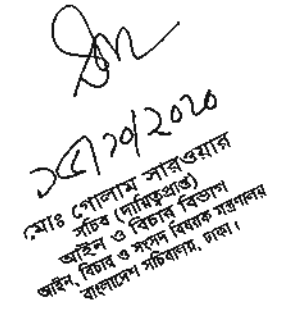 ২৫/১০/২০২০
মোঃ গোলাম সারওয়ার
সচিব (দায়িত্বপ্রাপ্ত)
আইন ও বিচার বিভাগ
আইন, বিচার ও সংসদ বিষয়ক মন্ত্রণালয়
বাংলাদেশ সচিবালয়, ঢাকা।